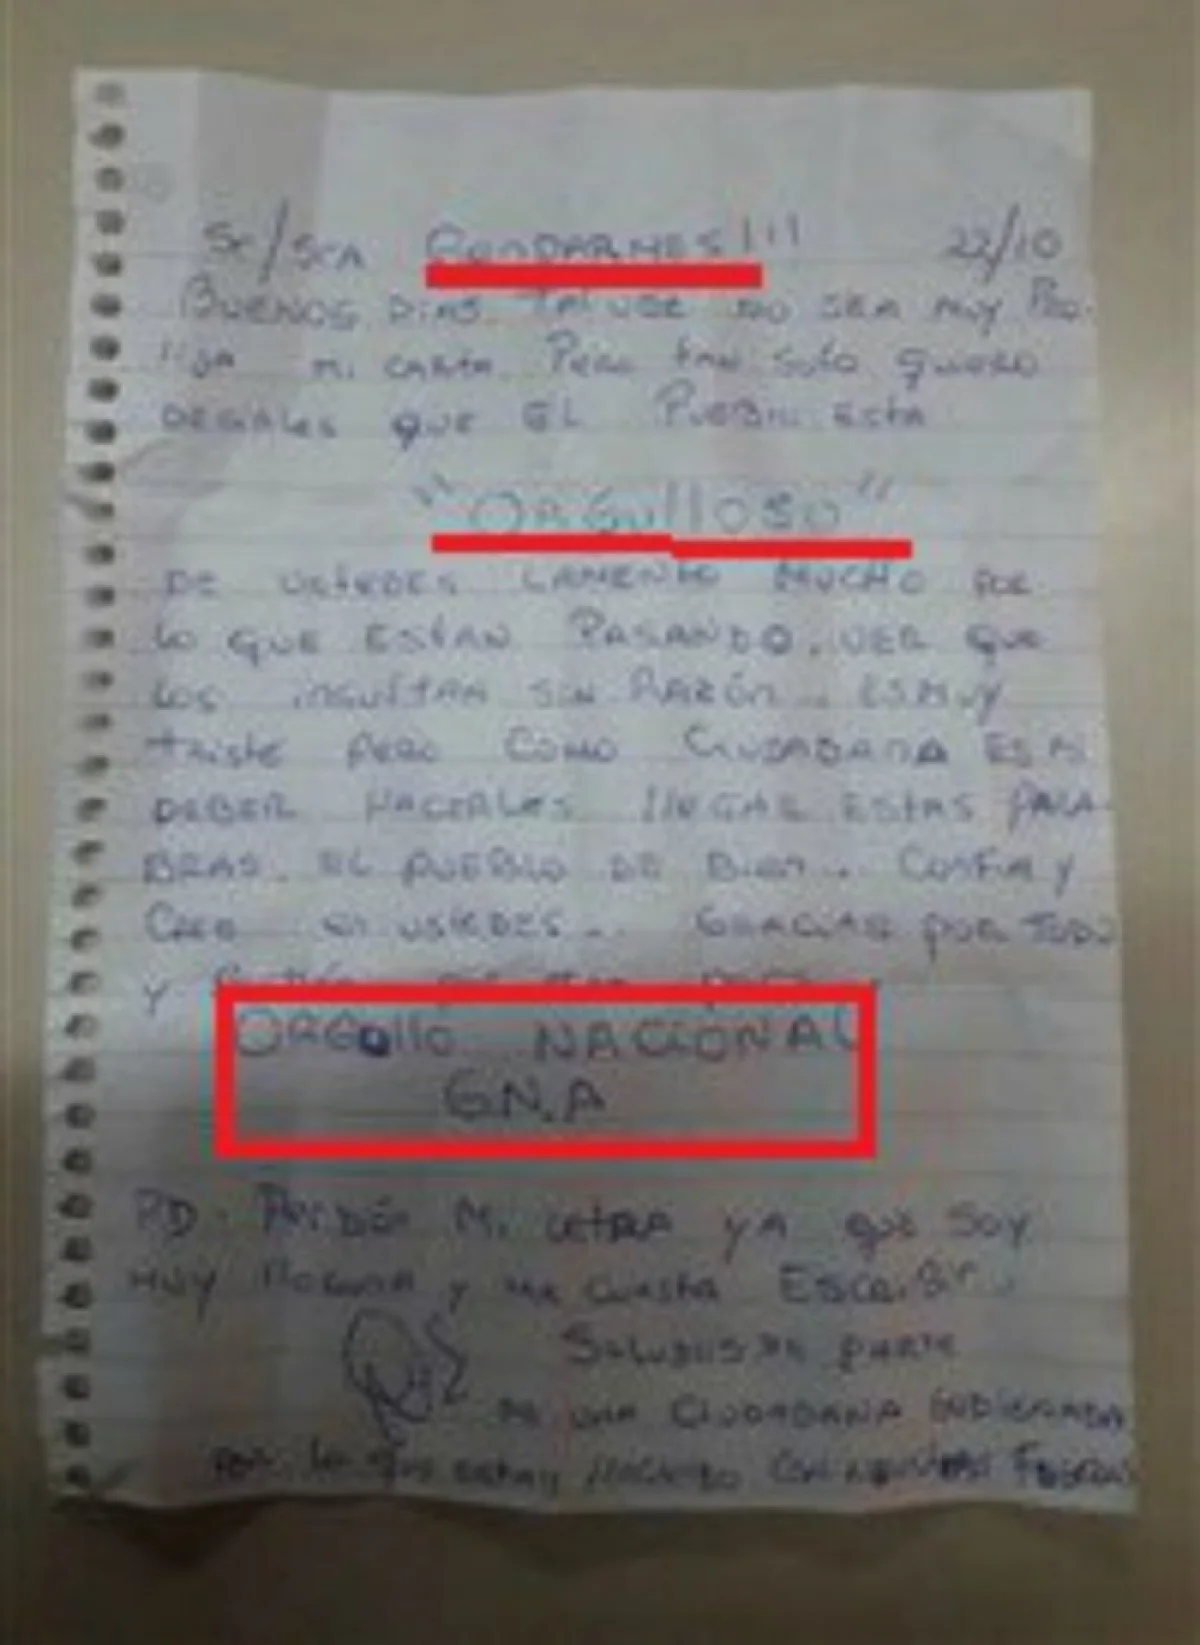 Sr/Sra GENDARMES!!! 22/10
BUENOS DIAS. Tal vez NO SEA MUY PRO-
lija mi CARTA. PERO tan Solo quiero
DECIRLES QUE EL Pueblo ESTA
"ORGulloso"
DE USTEDES LAMENTO MUCHO POR
lo QUE ESTAN PASANDO. VER QUE
los insultan sin RAZÓN.. ES MUY
triste PERO COMO CIUDADANA ES MI
DEBER HACERLES llEGAR ESTAS PALA
BRAS. EL PUEBLO DE Bien.. CONFIA y
CREE EN USTEDES.. GRACIAS POR TODO
y
ORGollo NACIONAL
GN.A
P.D. Perdón Mi LETRA y A que Soy
MUY y me cuesta Escribir..
Saludos de PARTE
DE UNA CIUDADANA INDIGNADA
POR lo que estan HACIENDO CON